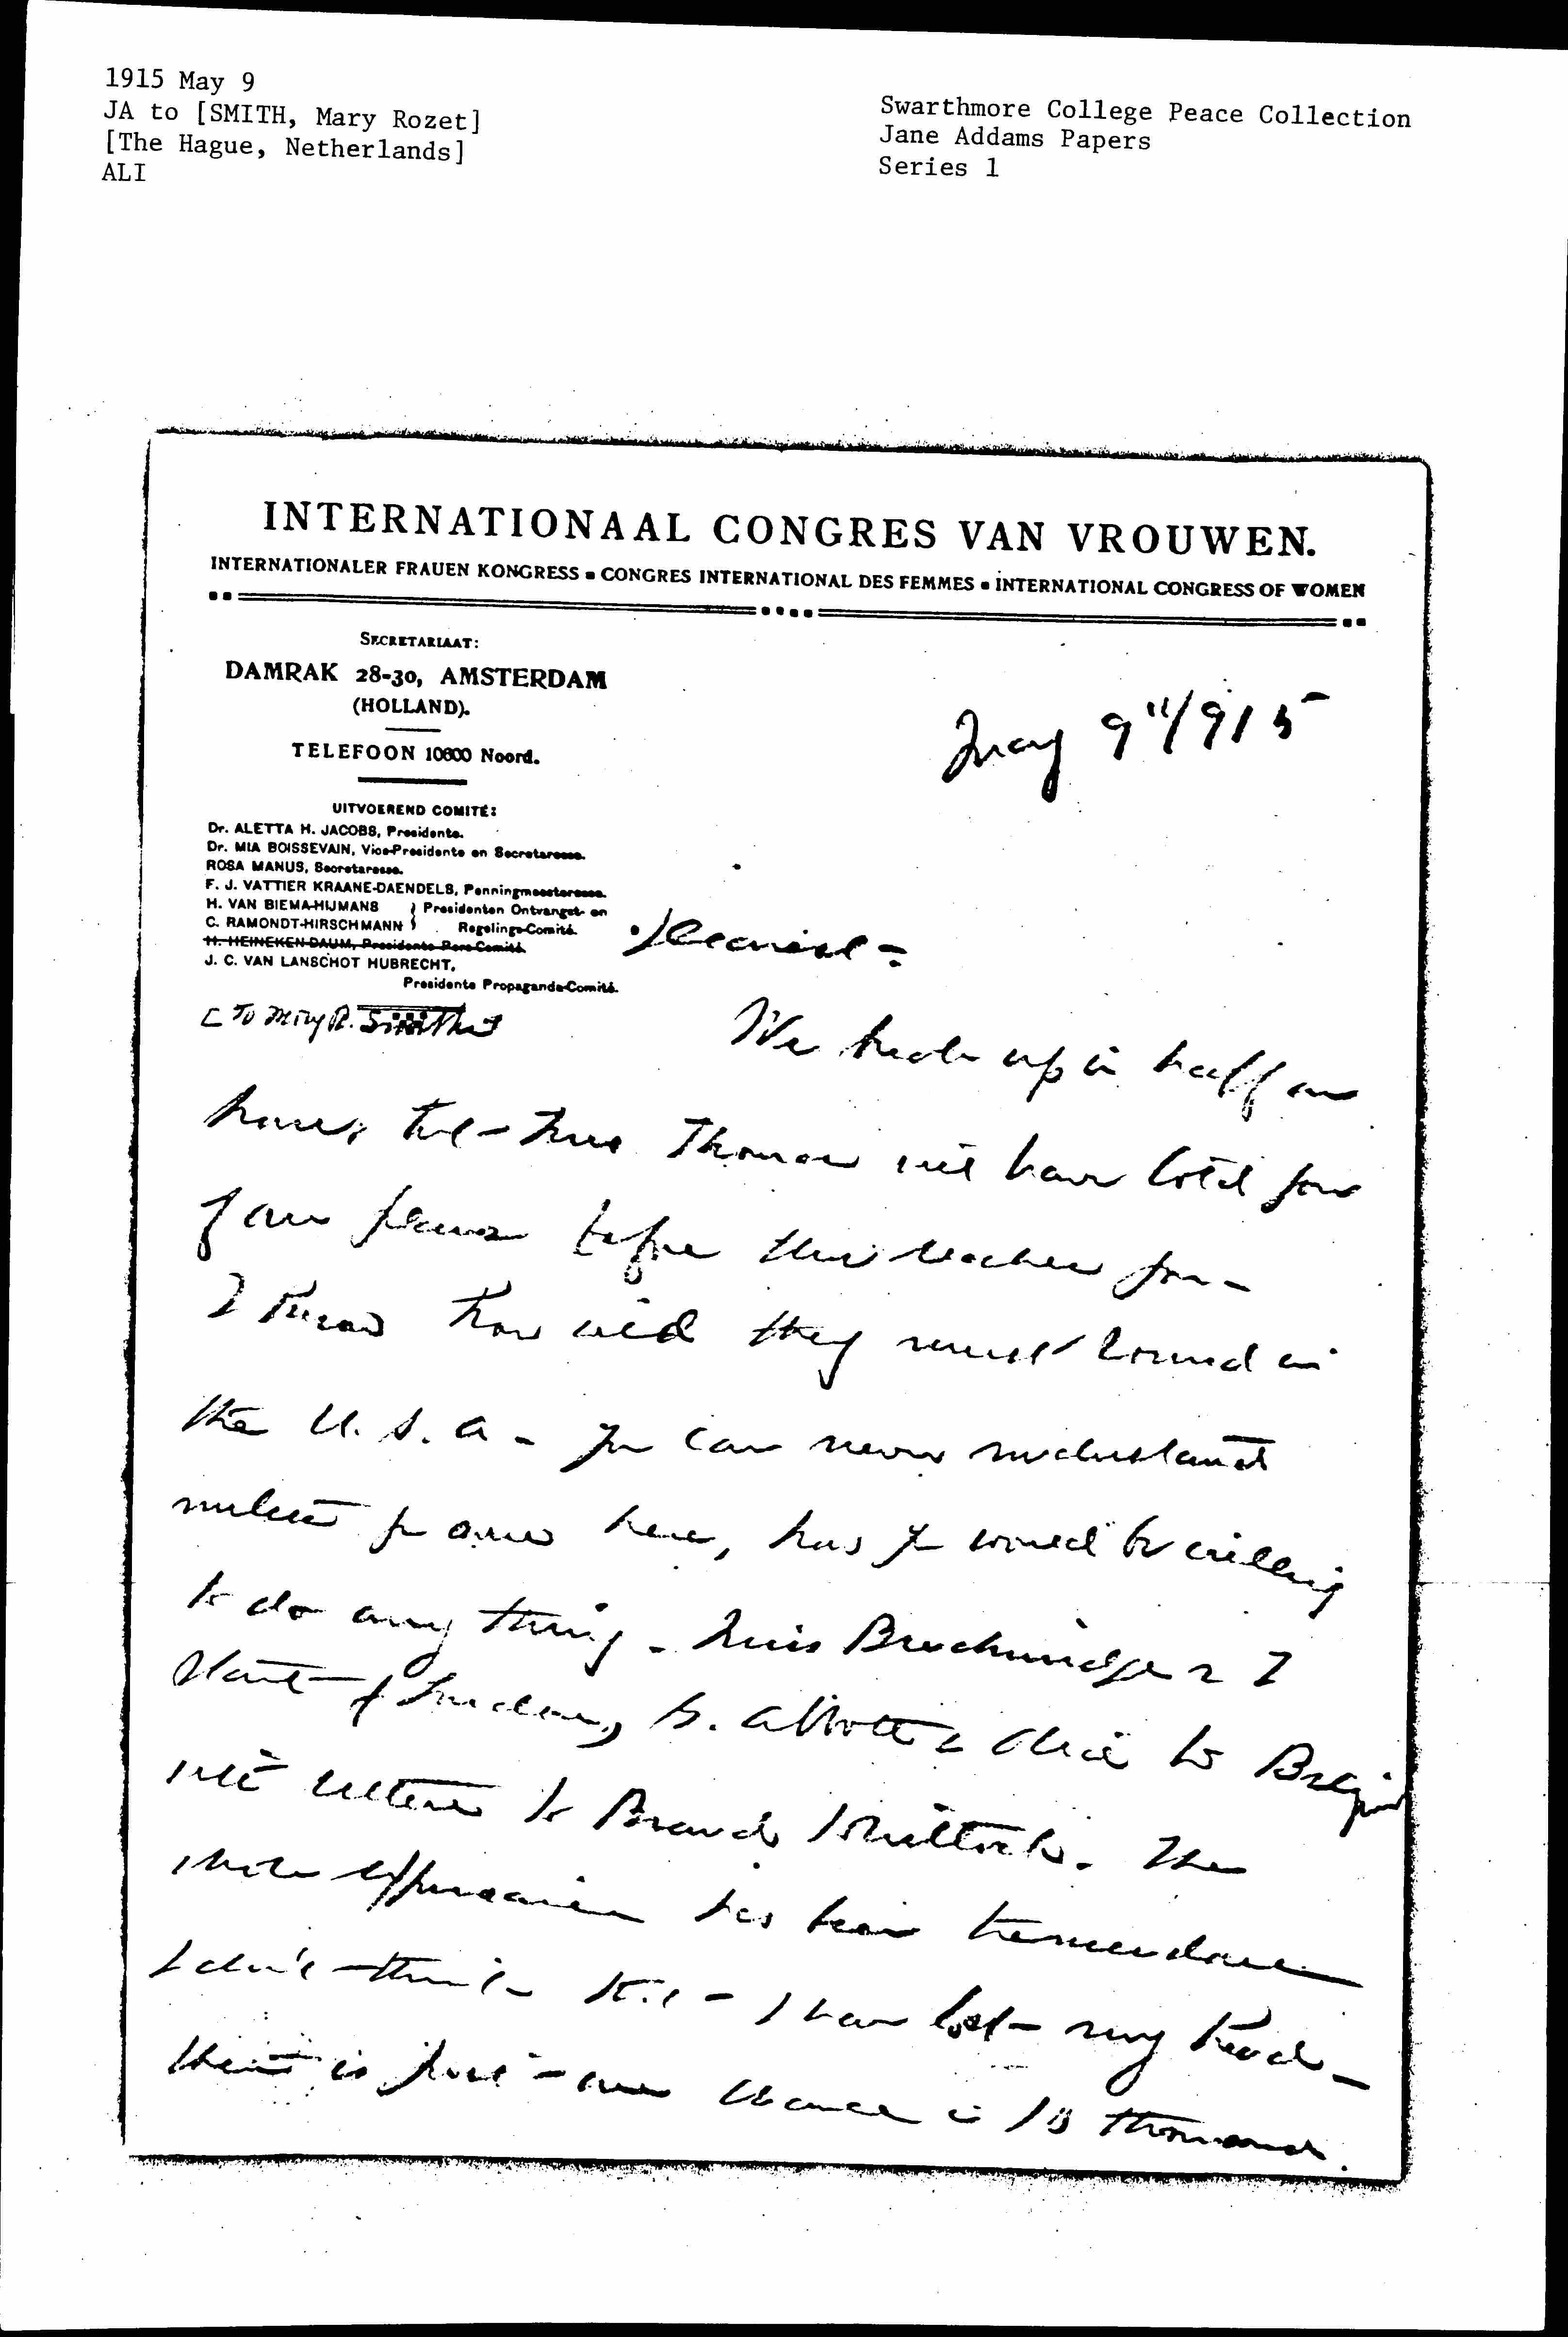 1915 May 9
JA to [SMITH, Mary Rozet]
[The Hague, Netherlands]
ALI
Swarthmore College Peace Collection
Jane Addams Papers
Series 1
INTERNATIONAAL CONGRES VAN VROUWEN.
INTERNATIONALER FRAUEN KONGRESS ▪ CONGRES INTERNATIONAL DES FEMMES ▪ INTERNATIONAL CONGRESS OF WOMEN
SECRETARIAAT:
DAMRAK 28-30, AMSTERDAM
(HOLLAND).
TELEFOON 10600 Noord.
May 9"/915
UITVOEREND COMITÉ:
Dr. ALETTA H. JACOBS, Presidente.
Dr. MIA BOISSEVAIN, Vice-Presidente en Secretaresse.
ROSA MANUS, Secretaresse.
F. J. VATTIER KRAANE-DAENDELS, Penningmeesteresse.
H. VAN BIEMA-HIJMANS } Presidenten Ontvangst- en
C. RAMONDT-HIRSCHMANN } Regelings-Comité.
H. HEINEKEN-DAUM, Presidente Pers-Comité.
J. C. VAN LANSCHOT HUBRECHT,
Presidente Propaganda-Comité.
[To Mary R. Smith]
Dearest -
We break up in half an
hour, but Miss Thomas will have told you
of our plans before this reaches you -
I know how wild they must sound in
the U.S.A - You can never understand
unless you were here, how you would be willing
to do any thing - Miss Breckinridge & I
start for London, G. Abbott & Alice to Belgium
with letters to Brand Whitlock. The
whole experience has been tremendous
I don't think that I have lost my head -
there is just one chance in 10 thousand.